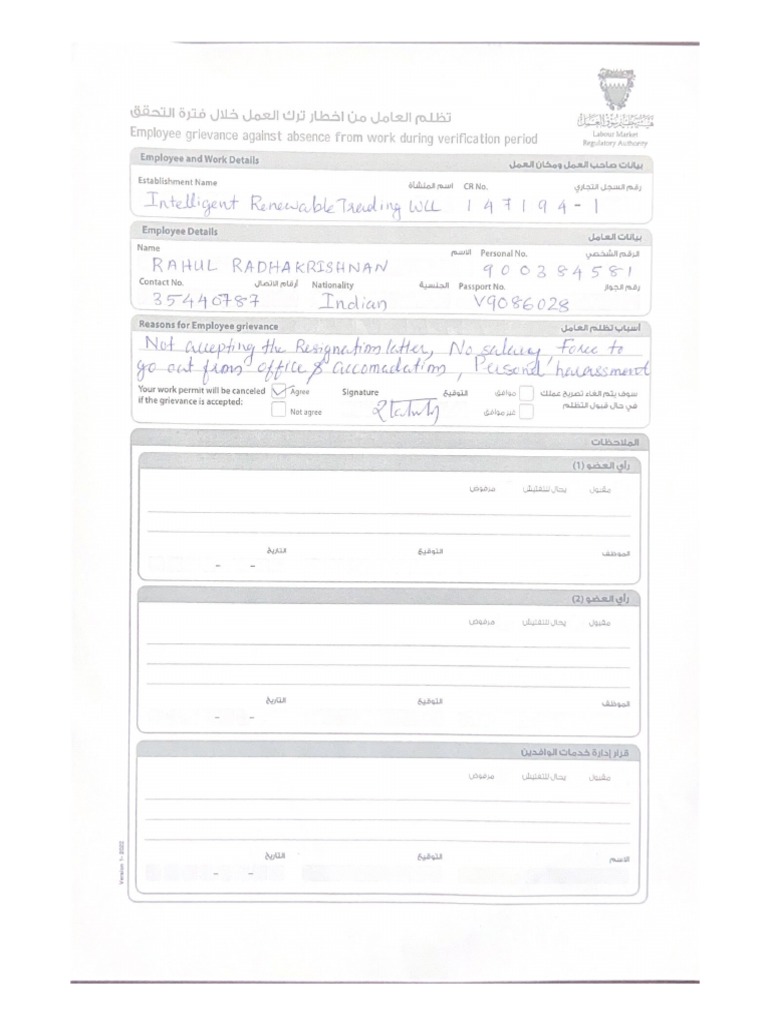 هيئة تنظيم سوق العمل
Labour Market
Regulatory Authority
تظلم العامل من اخطار ترك العمل خلال فترة التحقق
Employee grievance against absence from work during verification period
Employee and Work Details بيانات صاحب العمل ومكان العمل
Establishment Name اسم المنشأة CR No. رقم السجل التجاري
Intelligent Renewable Trading WLL 147194-1
Employee Details بيانات العامل
Name الاسم Personal No. الرقم الشخصي
RAHUL RADHAKRISHNAN 900384581
Contact No. أرقام الاتصال Nationality الجنسية Passport No. رقم الجواز
35440787 Indian V9086028
Reasons for Employee grievance أسباب تظلم العامل
Not accepting the Resignation latter, No salary, Force to
go out from office & accomadation, Personal harassment
Your work permit will be canceled Agree Signature التوقيع موافق سوف يتم الغاء تصريح عملك
if the grievance is accepted: Not agree غير موافق في حال قبول التظلم
الملاحظات
رأي العضو (1)
مقبول يحال للتفتيش مرفوض
الموظف التوقيع التاريخ
- -
رأي العضو (2)
مقبول يحال للتفتيش مرفوض
الموظف التوقيع التاريخ
- -
قرار إدارة خدمات الوافدين
مقبول يحال للتفتيش مرفوض
الاسم التوقيع التاريخ
- -
Version 1- 2022